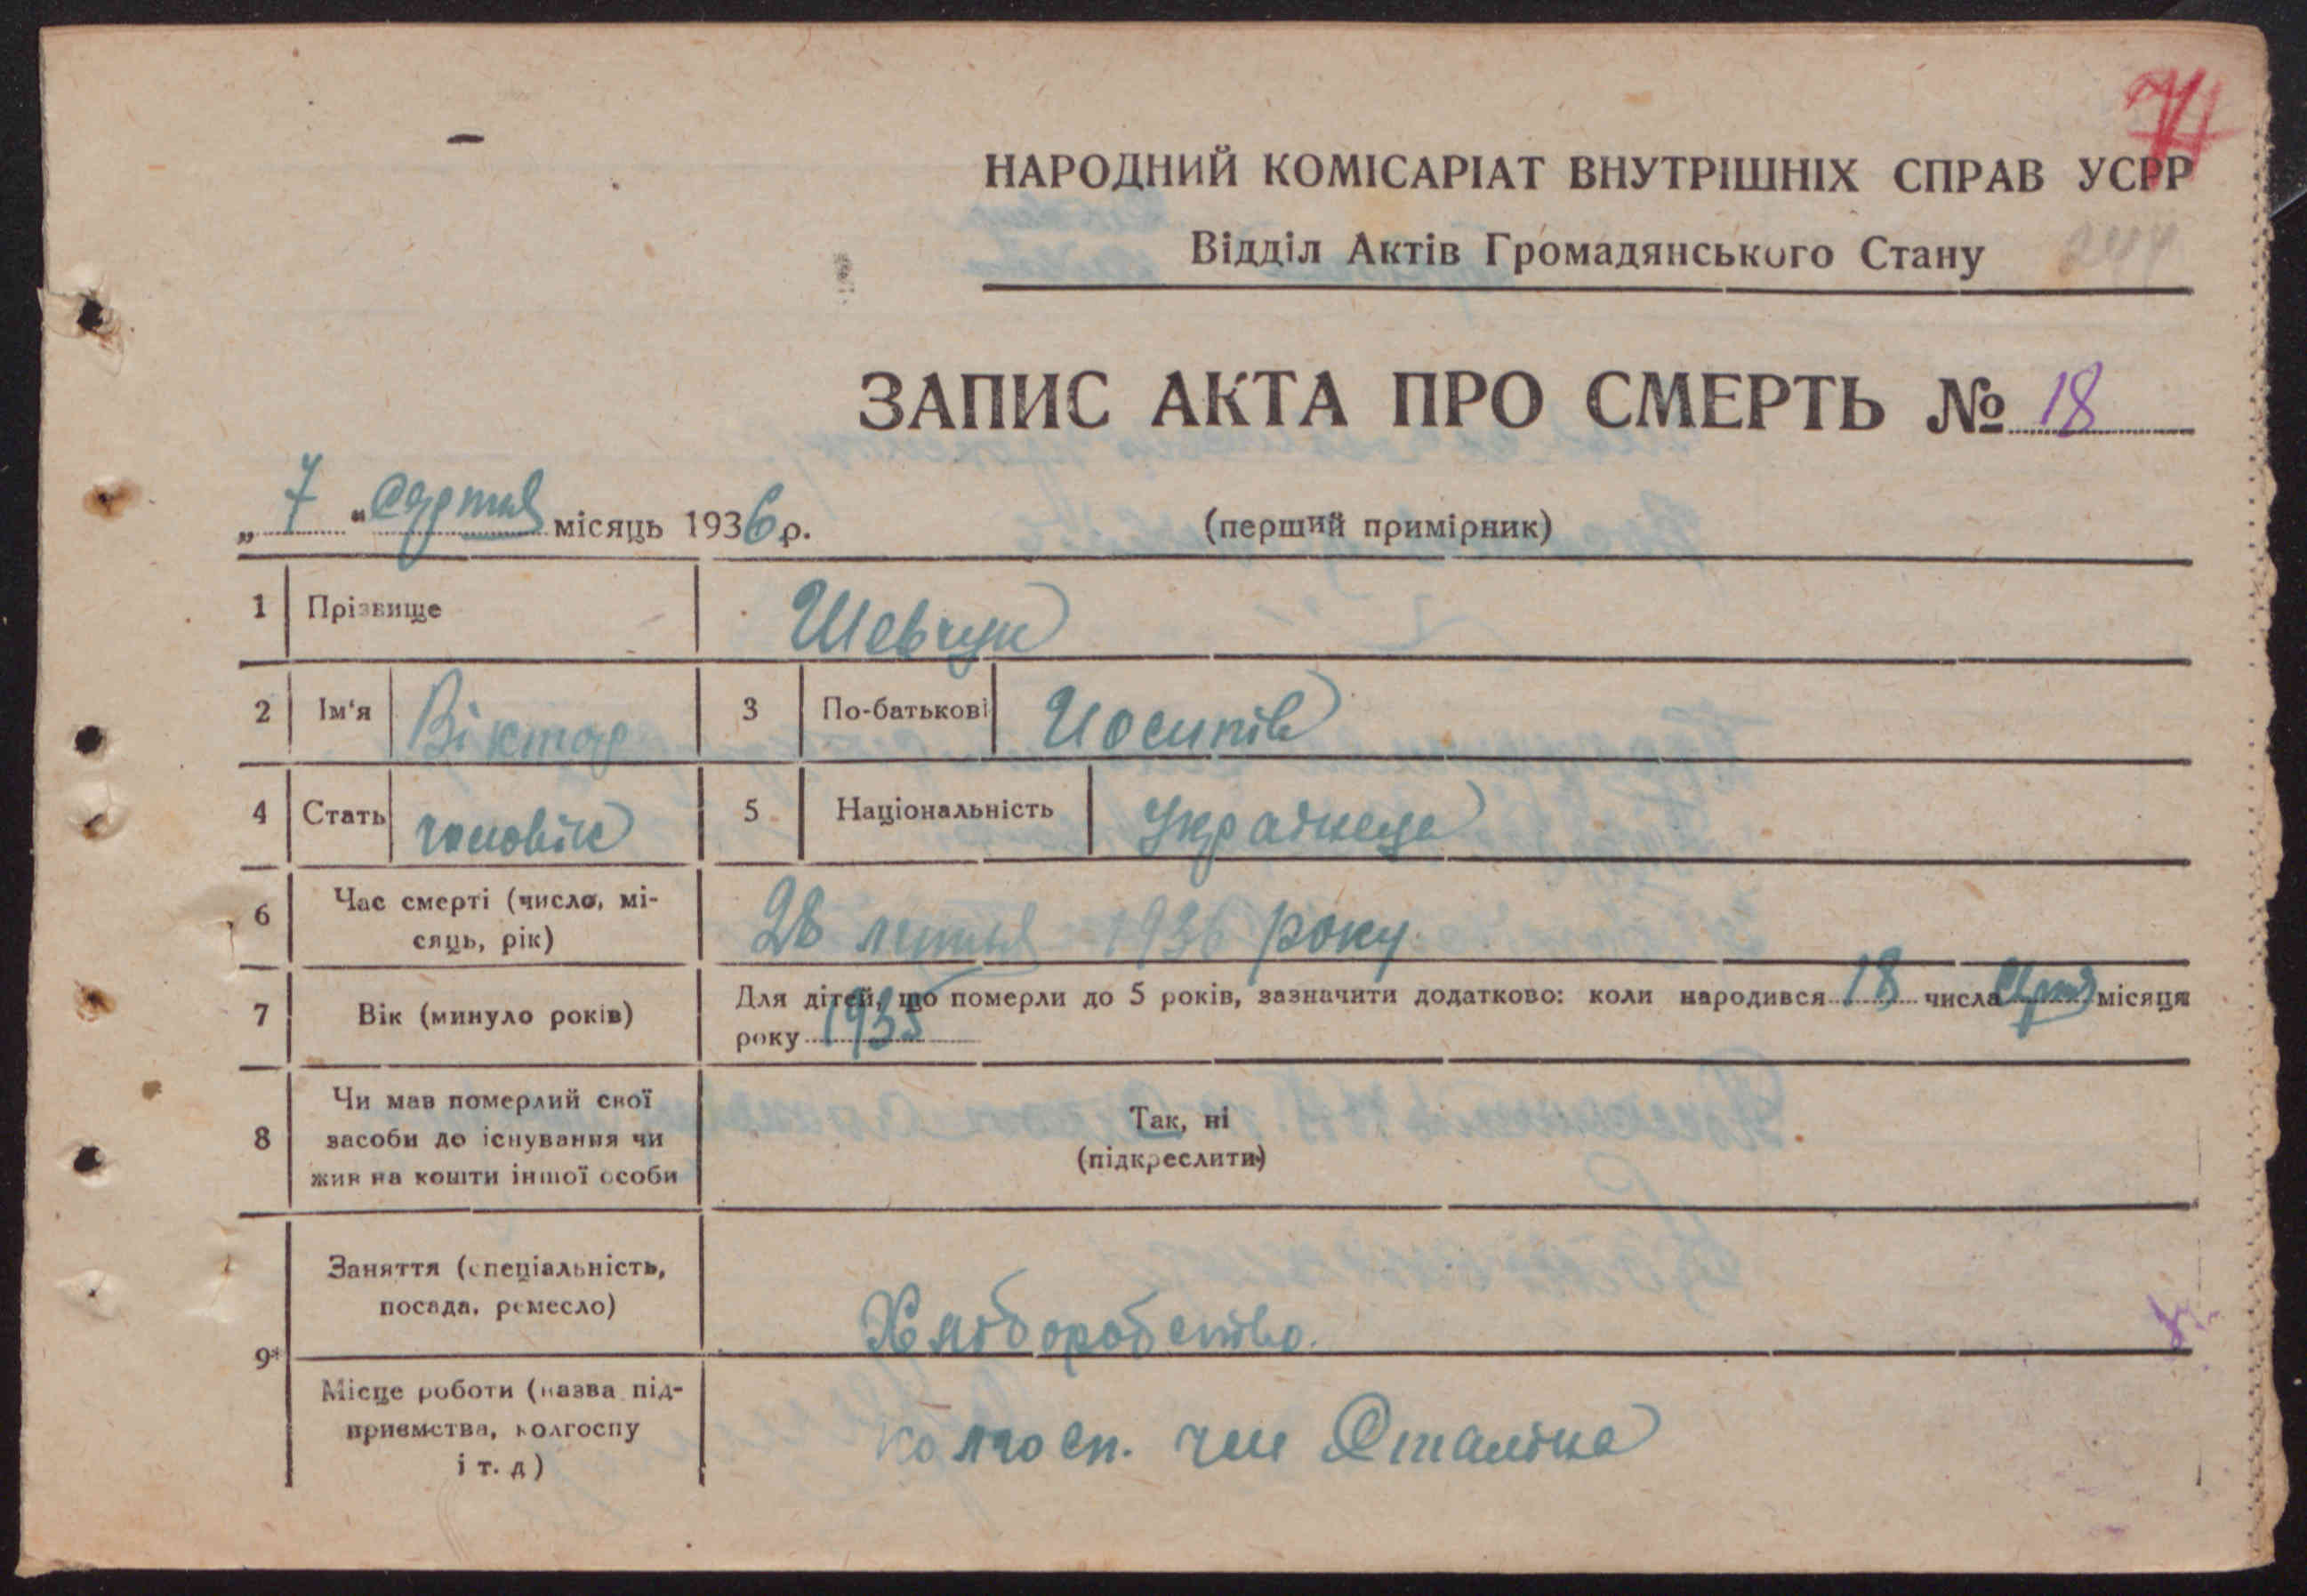 74
НАРОДНИЙ КОМІСАРІАТ ВНУТРІШНІХ СПРАВ УСРР
Відділ Актів Громадянського Стану 244
ЗАПИС АКТА ПРО СМЕРТЬ № 18
„ 7 “ серпня місяць 1936 р.
(перший примірник)
1 Прізвище Шевчук
2 Ім'я Віктор 3 По-батькові Йосипів
4 Стать чоловік 5 Національність Українець
6 Час смерті (число, мі-
сяць, рік) 28 липня 1936 року
7 Вік (минуло років) Для дітей, що померли до 5 років, зазначити додатково: коли народився 18 числа місяця
року 1935
8 Чи мав померлий свої
засоби до існування чи
жив на кошти іншої особи
Так, ні
(підкреслити)
9* Заняття (спеціальність,
посада, ремесло) Хліборобство.
Місце роботи (назва під-
приємства, колгоспу
і т. д) колгосп. Сталіна